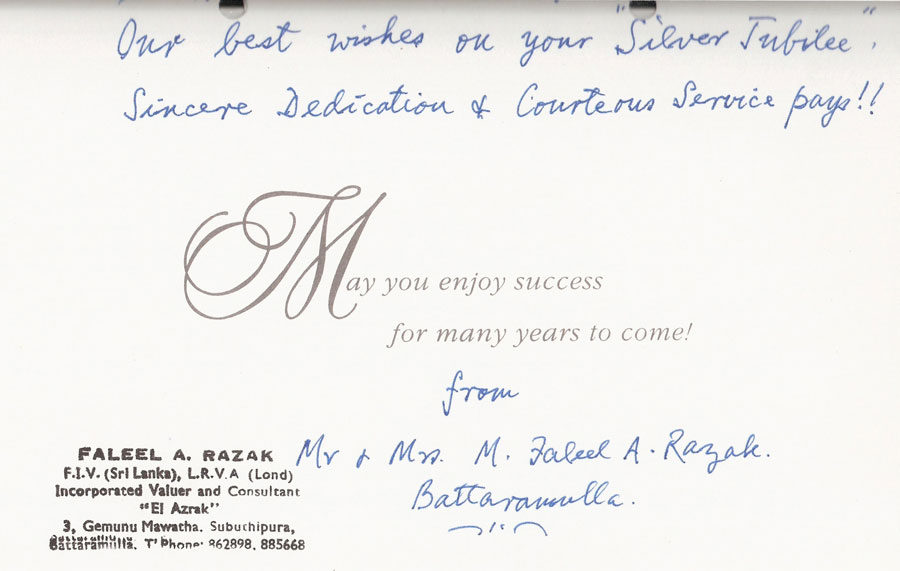 Our best wishes on your "Silver Jubilee".
Sincere Dedication & Courteous Service pays!!
May you enjoy success
for many years to come!
from
Mr & Mrs. M. Faleel A. Razak.
Battaramulla.
FALEEL A. RAZAK
F.I.V. (Sri Lanka), L.R.V.A (Lond)
Incorporated Valuer and Consultant
"El Azrak"
3, Gemunu Mawatha, Subuthipura,
Battaramulla. T'Phone: 862898, 885668